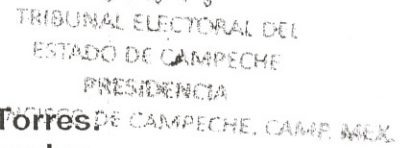 TRIBUNAL ELECTORAL DEL
ESTADO DE CAMPECHE
PRESIDENCIA
DE CAMPECHE, CAMP. MEX.
Torres.